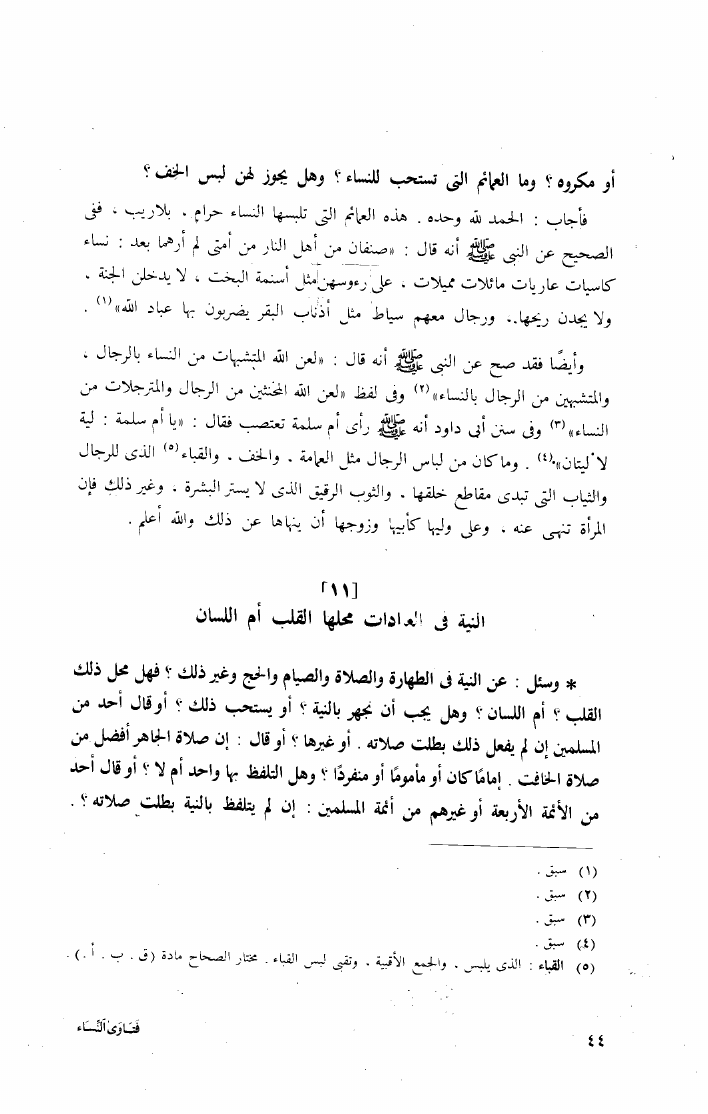 أو مكروه ؟ وما العمائم التى تستحب للنساء ؟ وهل يجوز لهن لبس الخف ؟
فأجاب : الحمد لله وحده . هذه العمائم التى تلبسها النساء حرام . بلاريب ، ففى
الصحيح عن النبى ﷺ أنه قال : «صنفان من أهل النار من أمتى لم أرهما بعد : نساء
كاسيات عاريات مائلات مميلات ، على رءوسهن مثل أسنمة البخت ، لا يدخلن الجنة .
ولا يجدن ريحها.. ورجال معهم سياط مثل أذناب البقر يضربون بها عباد الله»(١) .
وأيضًا فقد صح عن النبى ﷺ أنه قال : «لعن الله المتشبهات من النساء بالرجال ،
والمتشبهين من الرجال بالنساء»(٢) وفى لفظ «لعن الله المخنثين من الرجال والمترجلات من
النساء»(٣) وفى سنن أبى داود أنه ﷺ رأى أم سلمة تعتصب فقال : «يا أم سلمة : لية
لا ليتان»(٤) . وما كان من لباس الرجال مثل العمامة . والخف . والقباء(٥) الذى للرجال
والثياب التى تبدى مقاطع خلقها . والثوب الرقيق الذى لا يستر البشرة . وغير ذلك فإن
المرأة تنهى عنه ، وعلى وليها كأبيها وزوجها أن ينهاها عن ذلك والله أعلم .
[١١]
النية فى العادات محلها القلب أم اللسان
* وسئل : عن النية فى الطهارة والصلاة والصيام والحج وغير ذلك ؟ فهل محل ذلك
القلب ؟ أم اللسان ؟ وهل يجب أن نجهر بالنية ؟ أو يستحب ذلك ؟ أو قال أحد من
المسلمين إن لم يفعل ذلك بطلت صلاته . أو غيرها ؟ أو قال : إن صلاة الجاهر أفضل من
صلاة الخافت . إمامًا كان أو مأمومًا أو منفردًا ؟ وهل التلفظ بها واجد أم لا ؟ أو قال أحد
من الأئمة الأربعة أو غيرهم من أئمة المسلمين : إن لم يتلفظ بالنية بطلت صلاته ؟ .
(١) سبق .
(٢) سبق .
(٣) سبق .
(٤) سبق .
(٥) القباء : الذى يلبس . والجمع الأقبية . وتقبى لبس القباء . مختار الصحاح مادة (ق . ب . أ .) .
فَتَاوَى النِّسَاء
٤٤